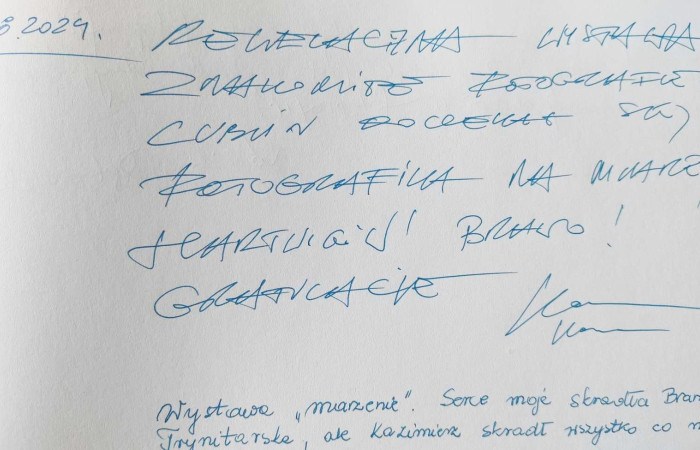 8.2024.
REWELACYJNA WYSTAWA
ZNAKOMITE FOTOGRAFIE
LUBLIN DOCZEKAŁ SIĘ
FOTOGRAFIKA NA MIARĘ
HARTWIGÓW! BRAWO!
GRATULACJE
Wystawa „marzenie". Serce moje skradła Bra
Trynitarska, ale Kazimierz skradł wszystko co m